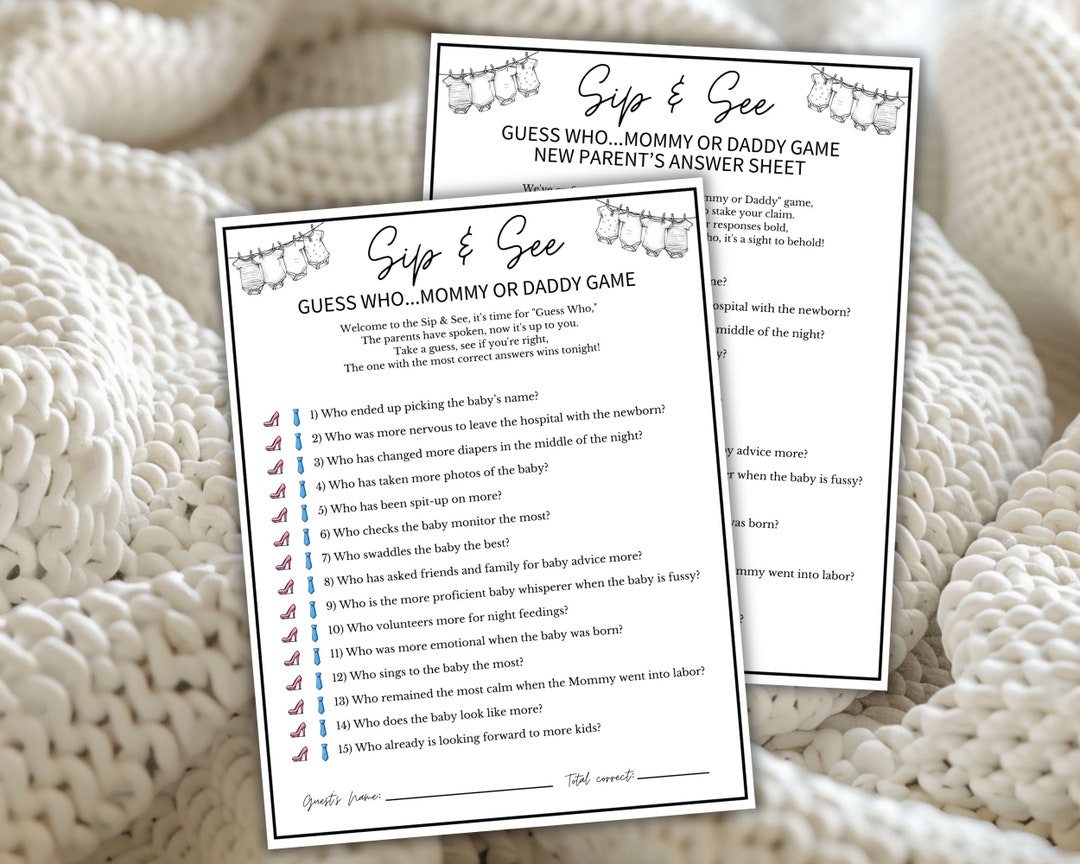 Sip & See
GUESS WHO...MOMMY OR DADDY GAME
NEW PARENT'S ANSWER SHEET
We've
or Daddy" game,
stake your claim.
responses bold,
it's a sight to behold!
with the newborn?
middle of the night?
advice more?
when the baby is fussy?
born?
went into labor?
Sip & See
GUESS WHO...MOMMY OR DADDY GAME
Welcome to the Sip & See, it's time for "Guess Who,"
The parents have spoken, now it's up to you.
Take a guess, see if you're right,
The one with the most correct answers wins tonight!
1) Who ended up picking the baby's name?
2) Who was more nervous to leave the hospital with the newborn?
3) Who has changed more diapers in the middle of the night?
4) Who has taken more photos of the baby?
5) Who has been spit-up on more?
6) Who checks the baby monitor the most?
7) Who swaddles the baby the best?
8) Who has asked friends and family for baby advice more?
9) Who is the more proficient baby whisperer when the baby is fussy?
10) Who volunteers more for night feedings?
11) Who was more emotional when the baby was born?
12) Who sings to the baby the most?
13) Who remained the most calm when the Mommy went into labor?
14) Who does the baby look like more?
15) Who already is looking forward to more kids?
Guest's Name: Total correct: